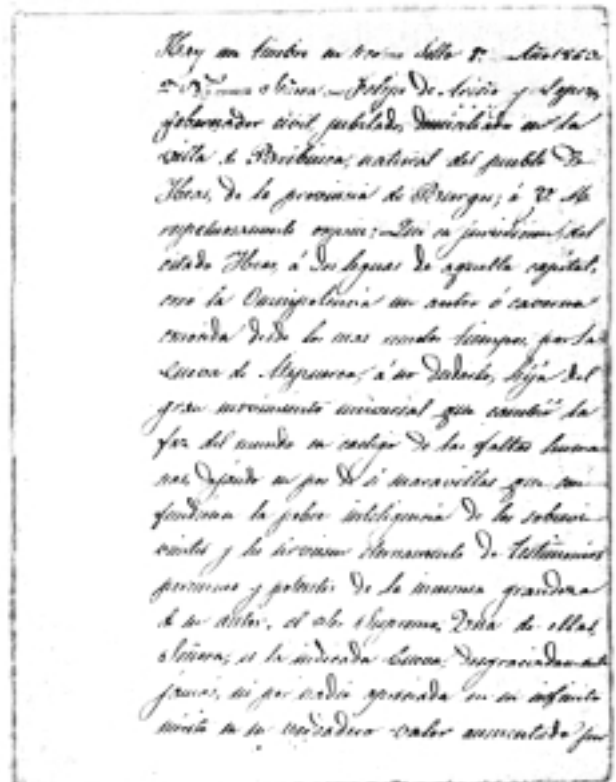 Hay un timbre en … Sello 8º Año 1863
… Señora … Felipe de Ariño y López
gobernador civil jubilado, domiciliado en la
villa de Briviesca, natural del pueblo de
Ibeas, de la provincia de Burgos; á V. M.
respetuosamente expone: Que en jurisdiccion del
citado Ibeas, á dos leguas de aquella capital,
creó la Omnipotencia un antro ó caverna
conocida desde los mas remotos tiempos, por la
Cueva de Atapuerca, á no dudarlo, hija del
gran movimiento universal que cambió la
faz del mundo en castigo de las faltas huma
nas, dejando en pos de sí maravillas que con
fundieran la pobre inteligencia de los sobrevi
vientes y les sirviesen eternamente de testimonios
perennes y potentes de la inmensa grandeza
de su autor, el Ser Supremo. Una de ellas,
Señora, es la indicada Cueva, desgraciadamente
jamás, ni por nadie apreciada en su infinito
mérito en su verdadero valor aumentado por